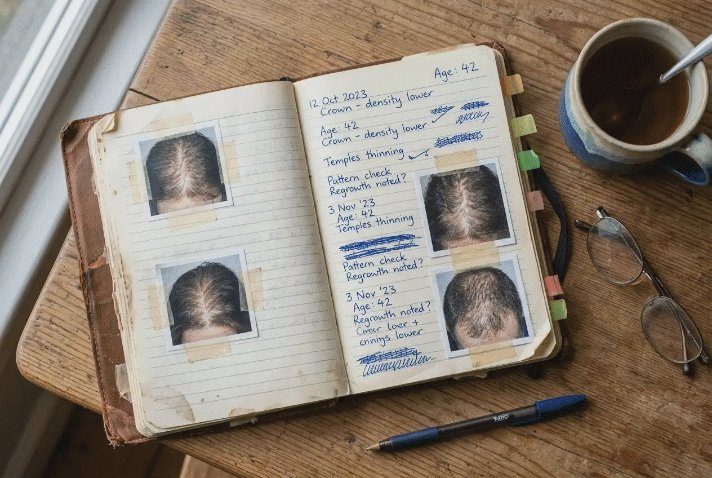 12 Oct 2023
Age: 42
Crown - density lower
Age: 42
Crown - density lower
Temples thinning
Pattern check
Regrowth noted?
3 Nov '23
Age: 42
Temples thinning
Pattern check
Regrowth noted?
3 Nov '23
Age: 42
Regrowth noted?
+
lower